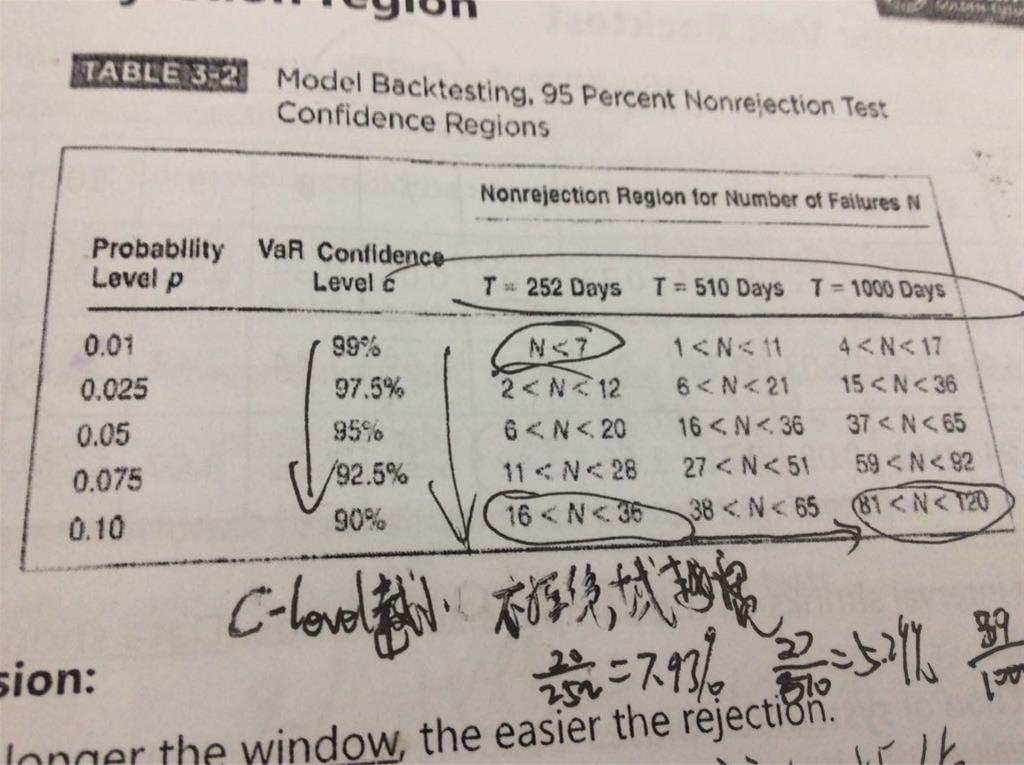 region
TABLE 3-2 Model Backtesting, 95 Percent Nonrejection Test
Confidence Regions
Nonrejection Region for Number of Failures N
Probability VaR Confidence
Level p Level c T = 252 Days T = 510 Days T = 1000 Days
0.01 99% N < 7 1 < N < 11 4 < N < 17
0.025 97.5% 2 < N < 12 6 < N < 21 15 < N < 36
0.05 95% 6 < N < 20 16 < N < 36 37 < N < 65
0.075 92.5% 11 < N < 28 27 < N < 51 59 < N < 92
0.10 90% 16 < N < 36 38 < N < 65 81 < N < 120
C-level 越小. 不拒绝域越宽
20/252 = 7.93% 27/510 = 5.29% 39/100
sion:
longer the window, the easier the rejection.